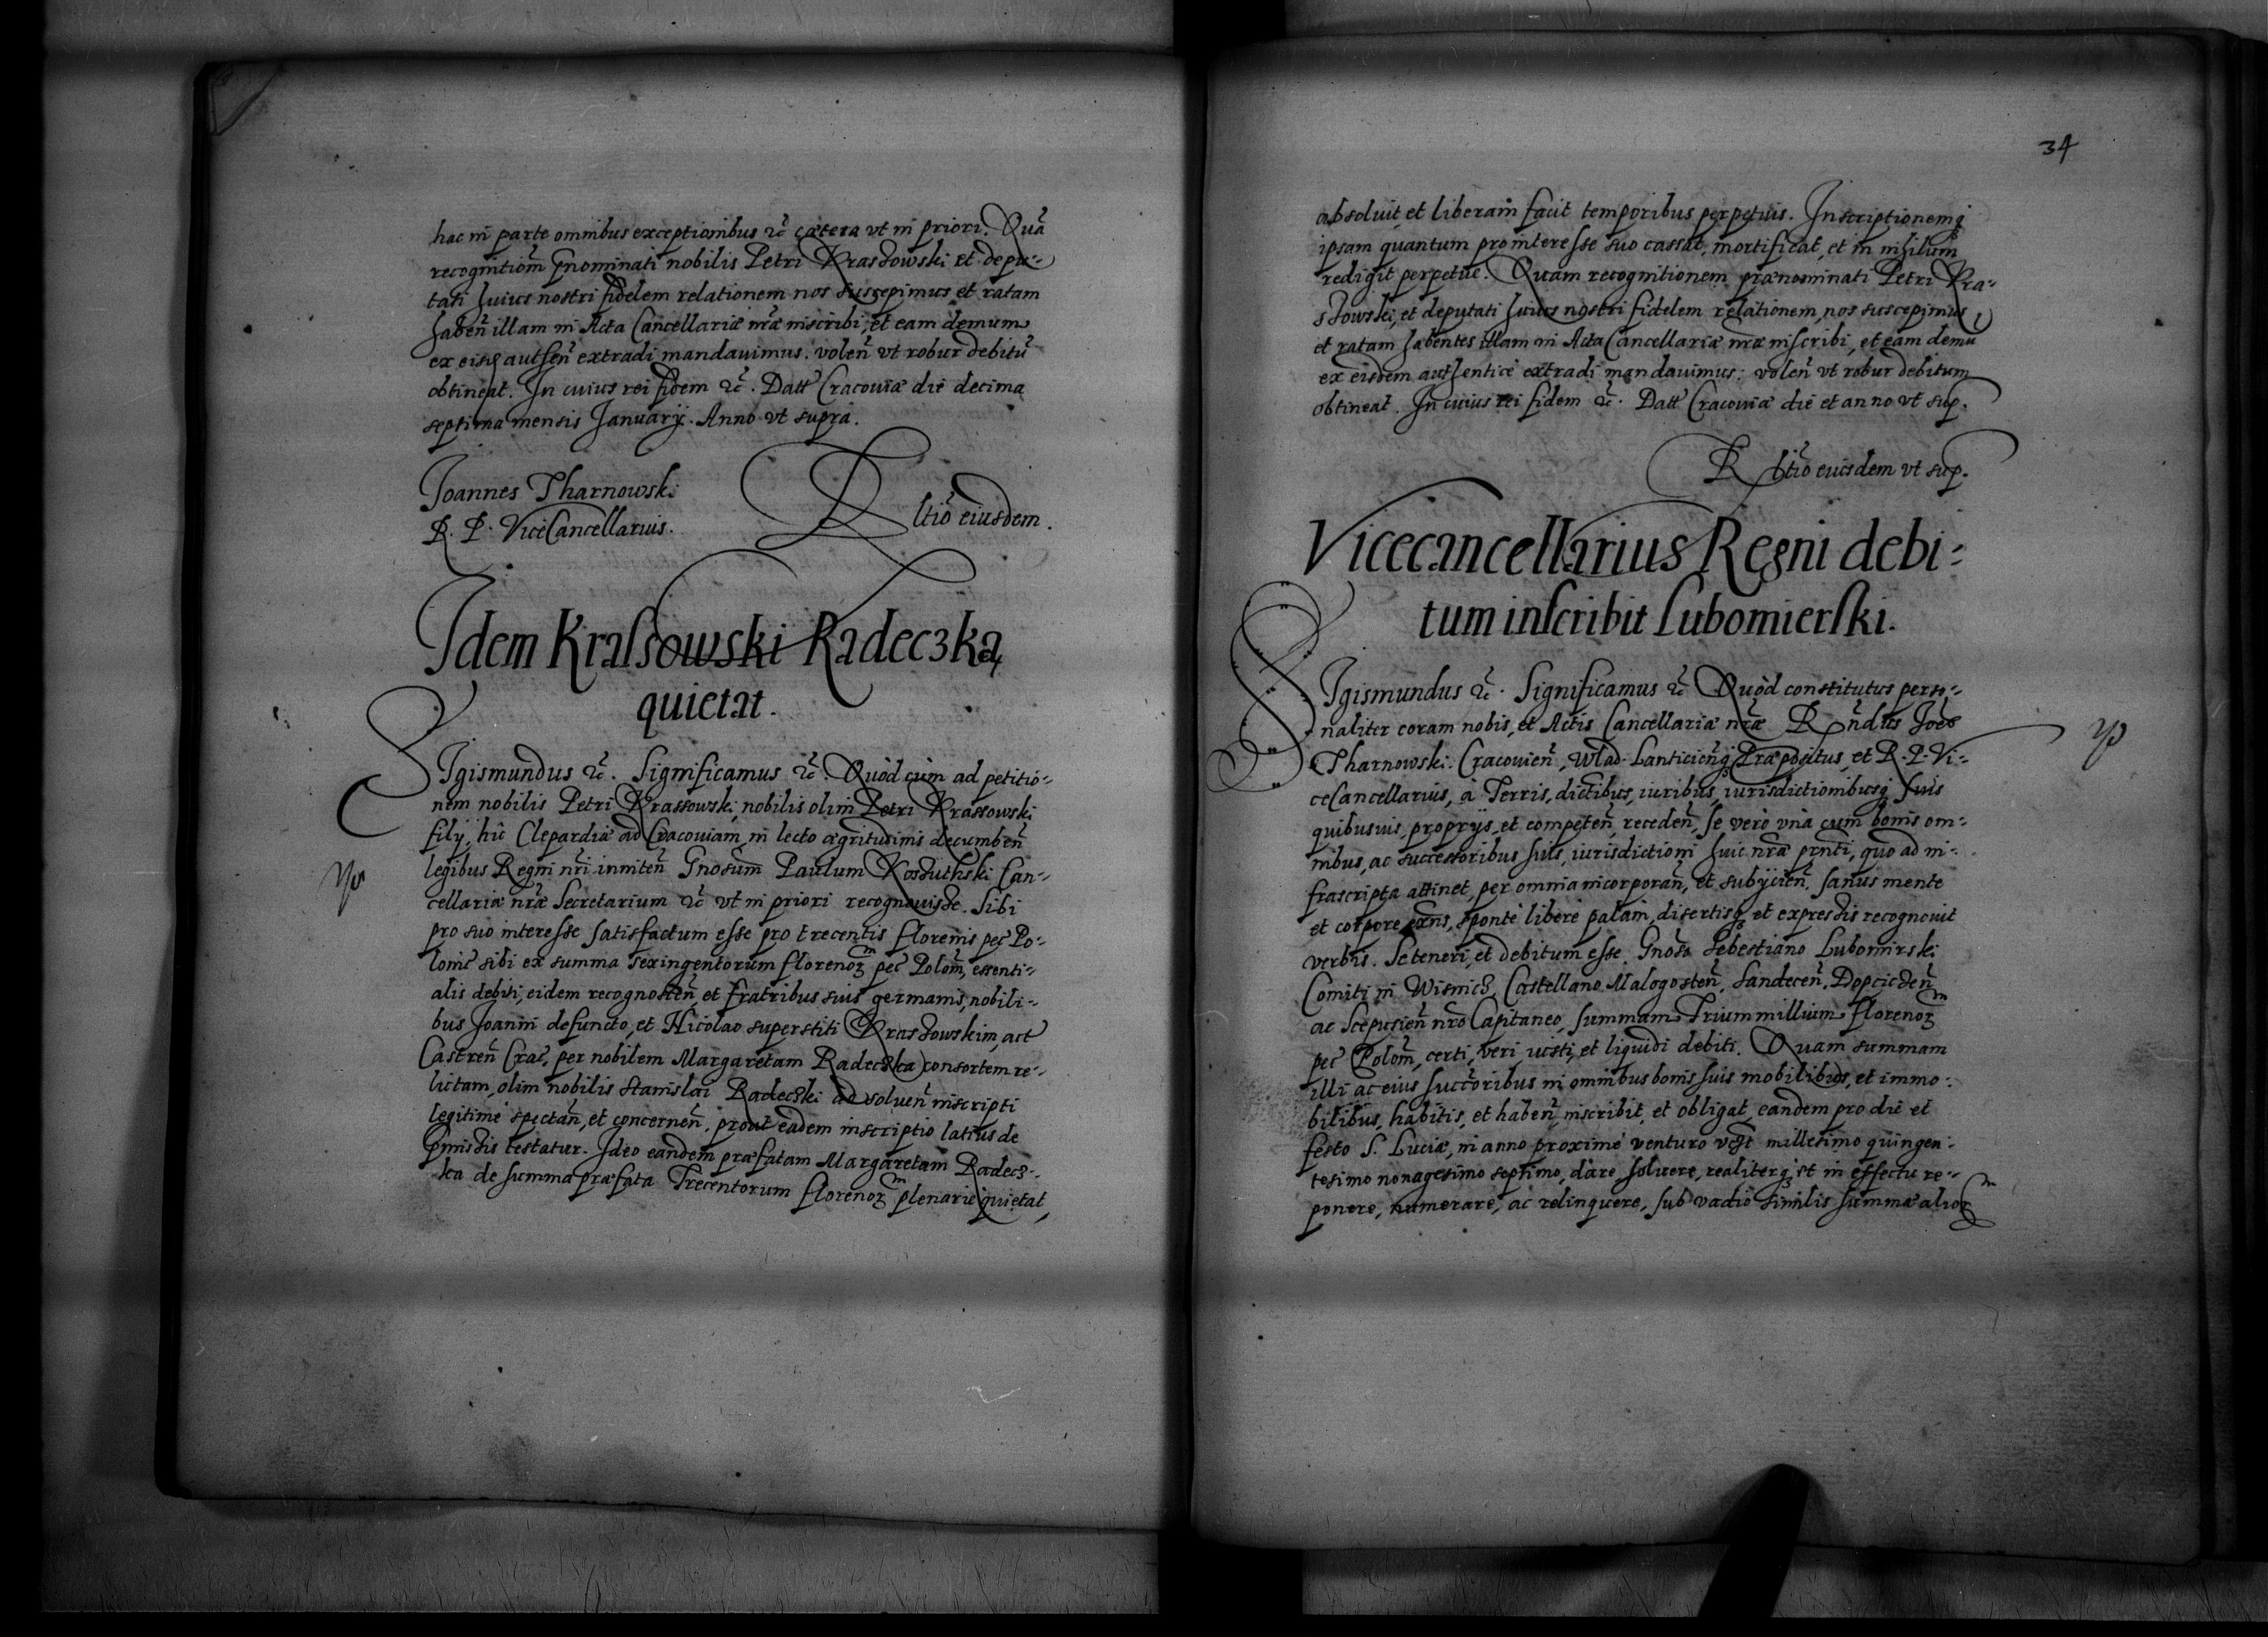 hac in parte omnibus exceptionibus &c̃ cætera vt in priori. Quã
recognitioñ p̃nominati nobilis Petri Krassowski et depu-
tati huius nostri fidelem relationem nos suscepimus et ratam
habeñ illam in Acta Cancellariæ nr̃æ inscribi, et eam demum
ex eisd authẽn extradi mandauimus. voleñ vt robur debitũ
obtineat. In cuius rei fidem &c̃. Datt Cracouiæ die decima
septima mensis Januarij. Anno vt supra.
Joannes Tharnowski
R. P. ViceCancellarius.
Rltio eiusdem.
Idem Krassowski Radeczką
quietat.
SIgismundus &c̃. Significamus &c̃. Quòd cùm ad petitio-
nem nobilis Petri Krassowski, nobilis olim Petri Krassowski
filij, hic Clepardiæ ad Cracouiam, in lecto ægritudinis decumbeñ
legibus Regni nr̃i inniteñ Gnosum Paulum Kossuthski Can-
cellariæ nr̃æ Secretarium &c̃ vt in priori recognouisse. Sibi
pro suo interesse satisfactum esse pro trecentis florenis pec̃ Po-
lonic̃ sibi ex summa sexingentorum florenoꝝ pec̃ Poloñ, essenti-
alis debiti, eidem recognosceñ, et fratribus suis germanis, nobili-
bus Joanni defuncto, et Nicolao superstiti Krassowskim, act
Castreñ Crac̃, per nobilem Margaretam Radeczka consortem re-
lictam, olim nobilis Stanislai Radeczki ad solueñ inscripti
legitime spectañ, et concerneñ, prout eadem inscriptio latius de
p̃missis testatur. Ideo eandem præfatam Margaretam Radecz-
ka de summa præfata Trecentorum florenoꝝ plenarie quietat,
34
absoluit, et liberam facit temporibus perpetuis. Inscriptionemq̃
ipsam quantum pro interesse suo cassat, mortificat, et in nihilum
redigit perpetue. Quam recognitionem prænominati Petri Kra-
ssowski, et deputati huius nostri fidelem relationem, nos suscepimus,
et ratam habentes illam in Acta Cancellariæ nr̃æ inscribi, et eam demũ
ex eisdem authenticè extradi mandauimus: voleñ vt robur debitum
obtineat. In cuius rei fidem &c̃. Datt Cracouiæ die et anno vt sup.
Rltio eiusdem vt sup.
Vicecancellarius Regni debi-
tum inscribit Lubomierski.
SIgismundus &c̃. Significamus &c̃ Quòd constitutus perso-
naliter coram nobis, et Actis Cancellariæ nr̃æ Rñdus Joẽs
Tharnowski. Cracouieñ, Wlad. Lanticieñq̃ Præpositus, et R. P. Vi-
ceCancellarius, à Terris, dictibus, iuribus, iurisdictionibusq̃ suis
quibusuis, proprijs, et competeñ, recedeñ, se verò vnà cum bonis om-
nibus, ac successoribus suis, iurisdictioni huic nr̃æ prñti, quo ad in-
frascripta attinet, per omnia incorporañ, et subijcieñ, sanus mente
et corpore exñs, sponte libere palam, disertisq̃ et expressis recognouit
verbis. Se teneri, et debitum esse Gnoso Sebestiano Lubomirski
Comiti in Wisnicz, Castellano Malogosteñ, Sandeceñ, Dopcicieñ
ac Scepusieñ nr̃o Capitaneo, summam Trium millium florenoꝝ
pec̃ Poloñ, certi, veri, iusti, et liquidi debiti. Quam summam
illi ac eius succ̃oribus in omnibus bonis suis mobilibus, et immo-
bilibus, habitis, et habeñ, inscribit, et obligat, eandem pro die et
festo S. Luciæ, in anno proxime venturo millesimo quingen-
tesimo nonagesimo septimo, dare, soluere, realiterq̃ et in effectu re-
ponere, numerare, ac relinquere, sub vadio similis summæ alioꝝ